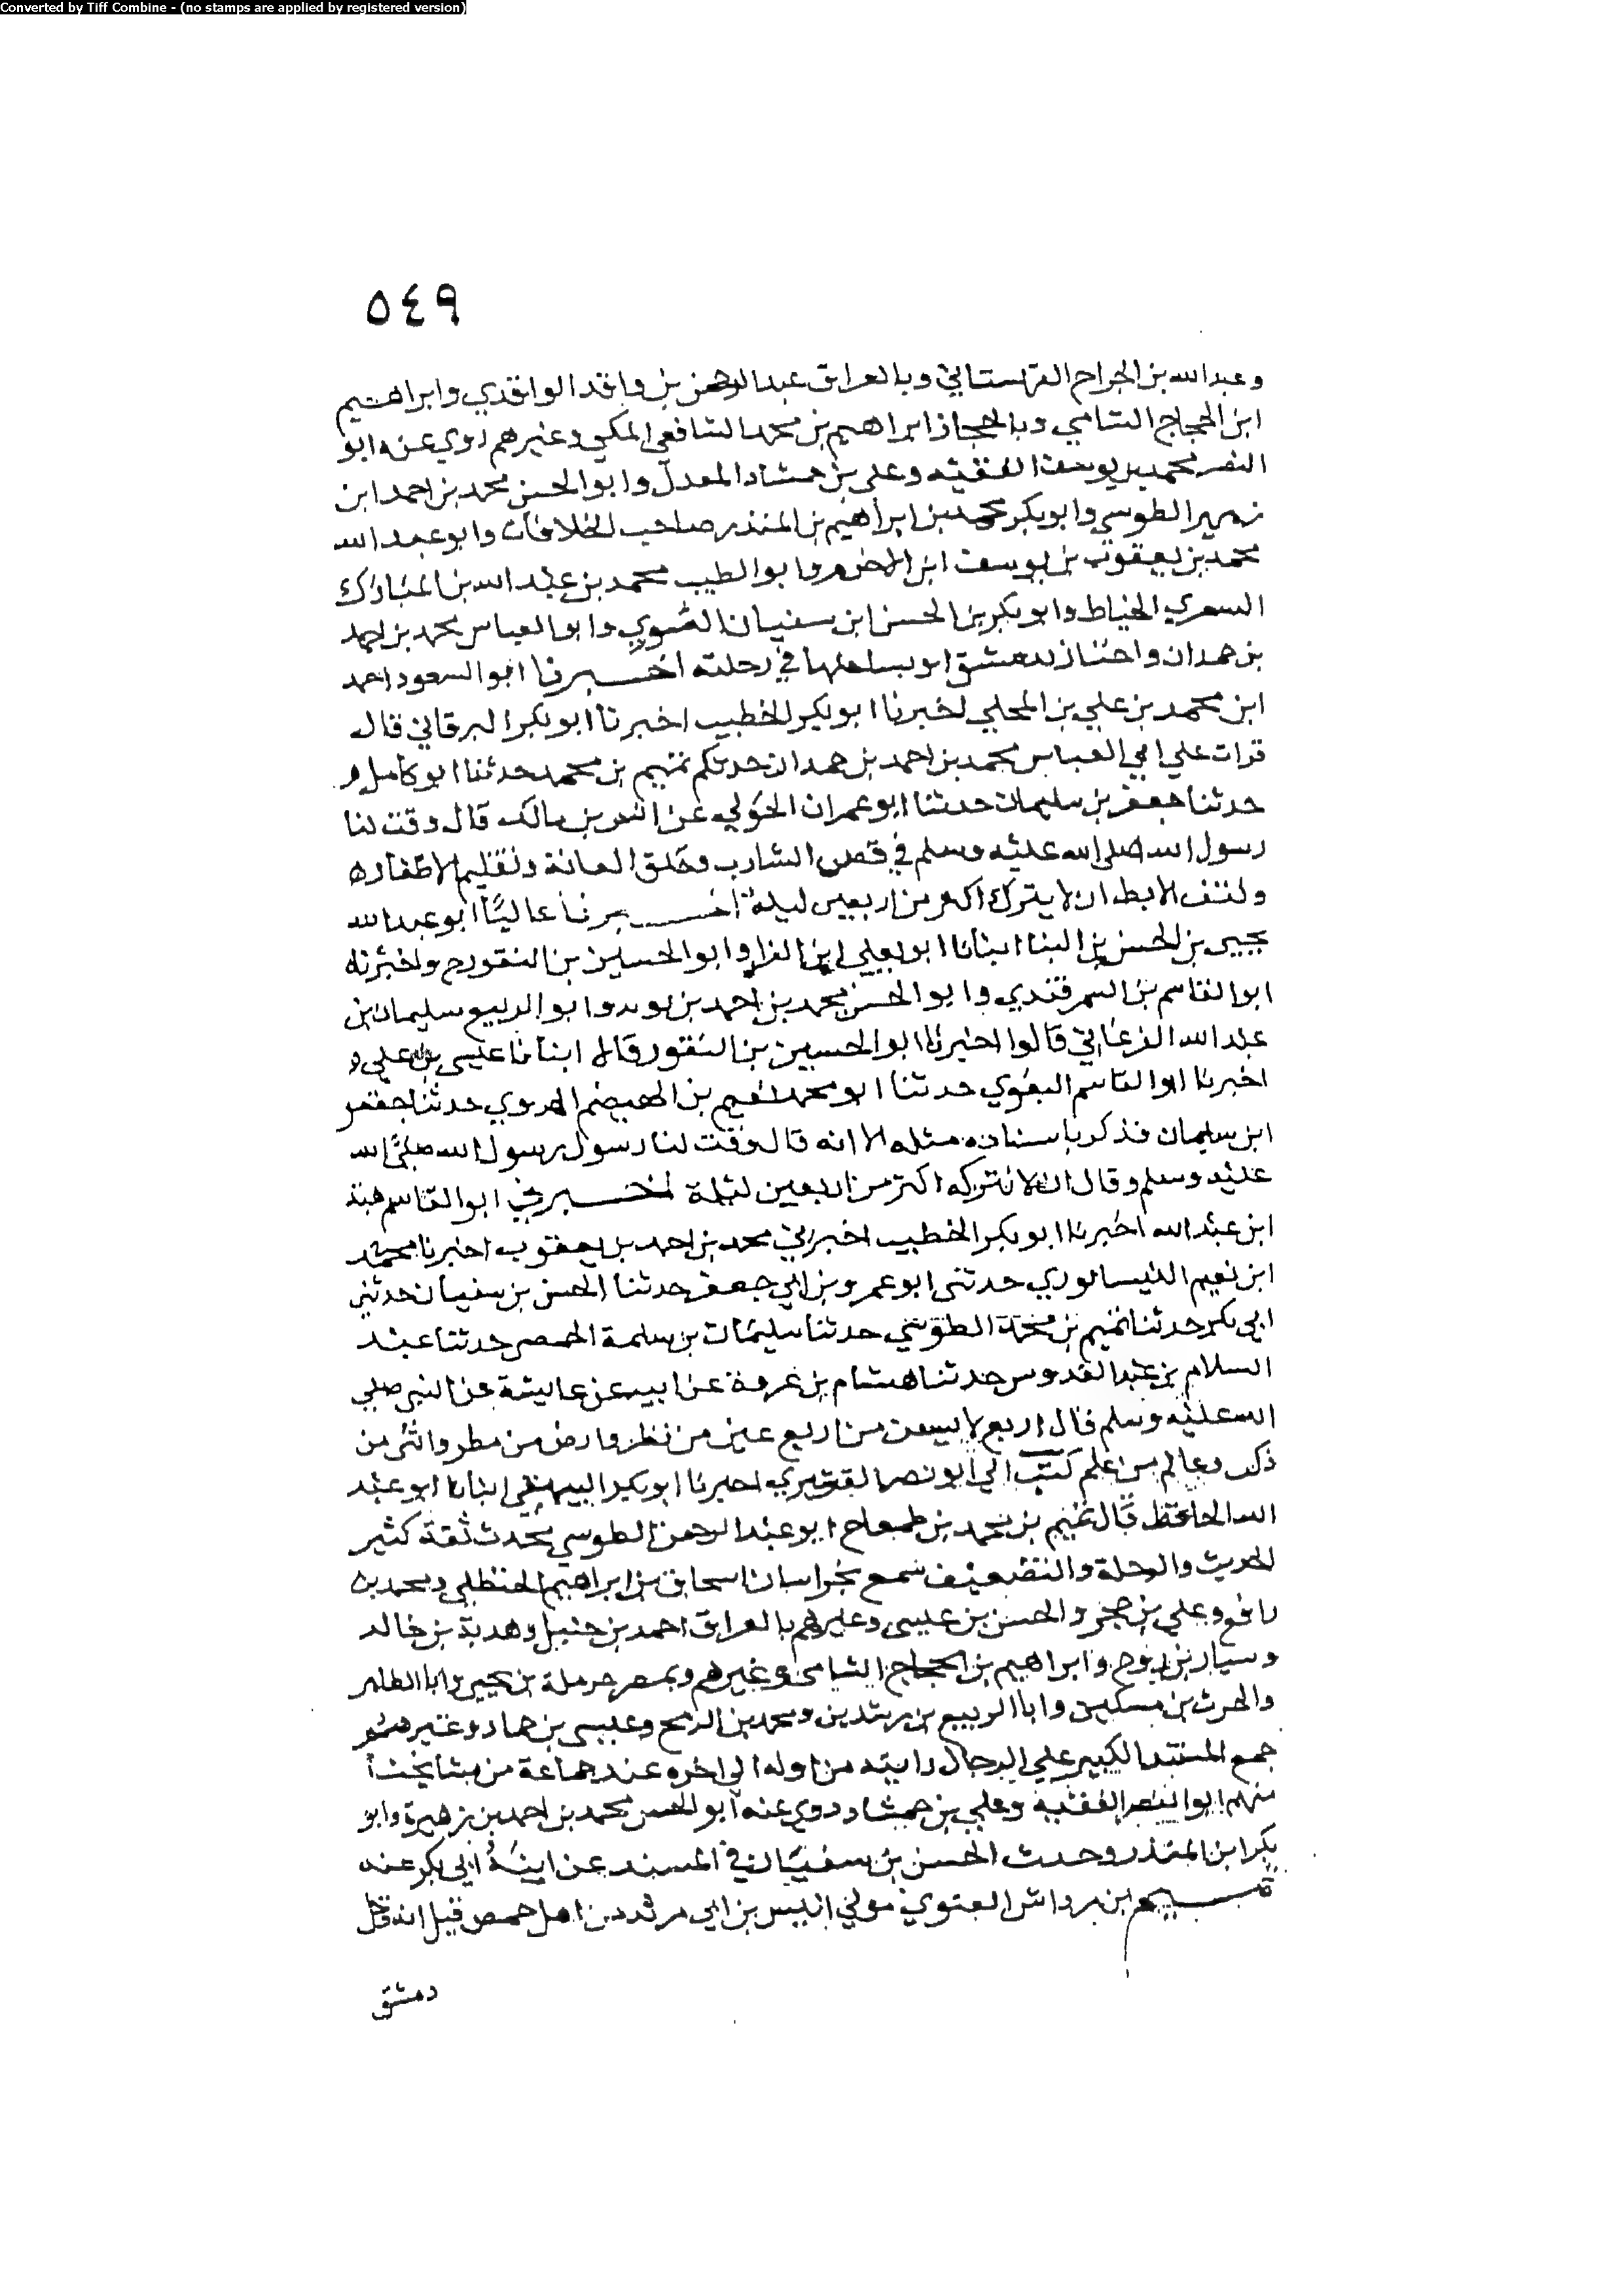 Converted by Tiff Combine - (no stamps are applied by registered version)
٥٤٩
وعبدالله بن الجراح القهستاني وبالعراق عبدالرحمن بن واقد الواقدي وابراهيم
ابن الحجاج الشامي وبالحجاز ابراهيم بن محمد الشافعي المكي وغيرهم روي عنه ابو
النضر محمد بن يوسف الفقيه وعلي بن حمشاد المعدل وابو الحسن محمد بن احمد ابن
زهير الطوسي وابو بكر محمد بن ابراهيم بن المنذر صاحب الخلافات وابو عبد الله
محمد بن يعقوب بن يوسف ابن الاخرم وابو الطيب محمد بن عبد الله بن المبارك
الشعري الخياط وابو بكر بن الحسن ابن سفيان النسوي وابو العباس محمد بن احمد
بن حمدان واجتاز بدمشق او بساحلها في رحلته اخبرنا ابو السعود احمد
ابن محمد بن علي بن المحلي اخبرنا ابو بكر الخطيب اخبرنا ابو بكر البرقاني قال
قرات علي ابي العباس محمد بن احمد بن حمدان حدثكم تميم بن محمد حدثنا ابو كامل
حدثنا جعفر بن سليمان حدثنا ابو عمران الجوني عن انس بن مالك قال وقت لنا
رسول الله صلى الله عليه وسلم في قص الشارب وحلق العانة وتقليم الاظفاره
ولنتف الابط ان لا يترك اكثر من اربعين ليلة اخبرنا عاليا ابو عبد الله
يحيى بن الحسن بن البنا انبانا ابو يعلي ابن الفرا وابو الحسين بن النقور ح واخبرناه
ابو القاسم بن السمرقندي وابو الحسن محمد بن احمد بن وابو الربيع سليمان بن
عبد الله الفرغاني قالوا اخبرنا ابو الحسين بن النقور قالا انبانا عيسى بن علي
اخبرنا ابو القاسم البغوي حدثنا ابو محمد نعيم بن الهيضم الهروي حدثنا جعفر
ابن سليمان فذكر باسناده مثله الا انه قال وقت لنا رسول رسول الله صلى الله
عليه وسلم وقال ان لا نتركه اكثر من اربعين ليلة اخبرني ابو القاسم هبة
ابن عبد الله اخبرنا ابو بكر الخطيب اخبرني محمد بن احمد بن يعقوب اخبرنا محمد
ابن نعيم النيسابوري حدثني ابو عمرو بن ابي جعفر حدثنا الحسن بن سفيان حدثني
ابي بكر حدثنا تميم بن محمد الطوسي حدثنا سليمان بن سلمة الحمصي حدثنا عبد
السلام بن عبد القدوس حدثنا هشام بن عروة عن ابيه عن عايشة عن النبي صلي
الله عليه وسلم قال اربع لا يشبعن من اربع عين من نظر وارض من مطر وانثى من
ذكر وعالم من علم كتب الي ابو نصر القشيري اخبرنا ابو بكر البيهقي انبانا ابو عبد
الله الحافظ قال تميم بن محمد بن طمغاج ابو عبد الرحمن الطوسي محدث ثقة كثير
الحديث والرحلة والتصنيف سمع بخراسان اسحاق بن ابراهيم الحنظلي ومحمد بن
رافع وعلي بن حجر والحسن بن عيسى وغيرهم بالعراق احمد بن حنبل وهدبة بن خالد
وسيار بن روح وابراهيم بن الحجاج الشامي وغيرهم وبمصر حرملة بن يحيى وابا الطاهر
والحرث بن مسكين وابا الربيع بن رشدين ومحمد بن الرمح وعيسى بن حماد وغيرهم
جمع المسند الكبير علي الرجال رايته من اوله الى اخره عند جماعة من مشايخنا
منهم ابو النضر الفقيه وعلي بن حمشاد روي عنه ابو الحسن محمد بن احمد بن زهيرة وابو
بكر ابن المنذر وحدث الحسن بن سفيان في المسند عن ابنه ابي بكر عنه
تميم ابن مرداش الغنوي مولي انيس بن ابي مرثد من اهل حمص قيل انه دخل
دمشق